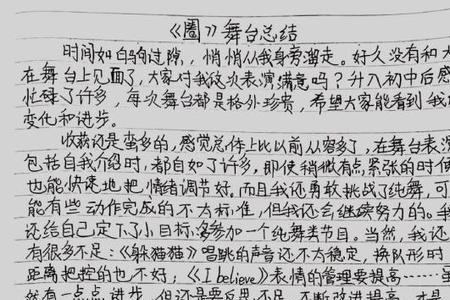 《圈》舞台总结
时间如白驹过隙，悄悄从我身旁溜走。好久没有和大
在舞台上见面了，大家对我这次表演满意吗？升入初中后感
忙碌了许多，每次舞台都是格外珍贵，希望大家能看到我
变化和进步。
收获还是蛮多的，感觉总体上比以前从容了，在舞台表演
包括自我介绍时，都自如了许多，即使稍微有点紧张的时候
也能快速地把情绪调节好。而且我还勇敢挑战了纯舞，可
能有些动作完成的不太标准，但我还会继续努力的。我
还给自己定下了小目标：多参加一个纯舞类节目。当然，我还
有很多不足：《躲猫猫》唱跳的声音还不太稳定，换队形时
距离把控的也不好；《I believe》表情的管理要提高……
然有一点点进步，但还是要反思不足，不断改进提高，才是